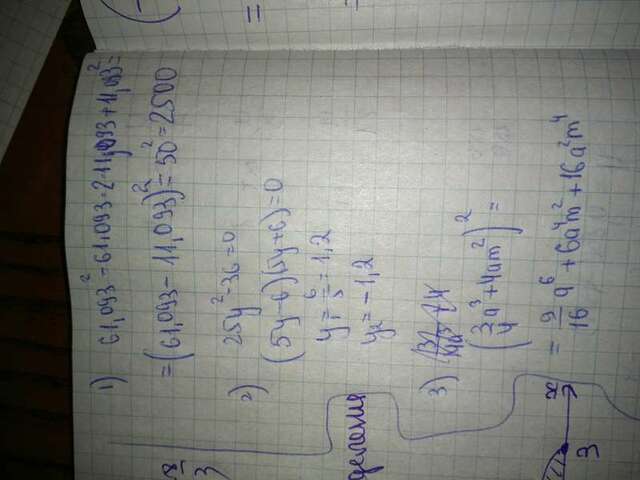 1) 61,093² - 61,093·2·11,093 + 11,093² =
= (61,093 - 11,093)² = 50² = 2500
2) 25y² - 36 = 0
(5y-6)(5y+6) = 0
y₁ = 6/5 = 1,2
y₂ = -1,2
3)
(3/4 a³ + 4am²)² =
= 9/16 a⁶ + 6a⁴m² + 16a²m⁴
8/3
деления
3
x